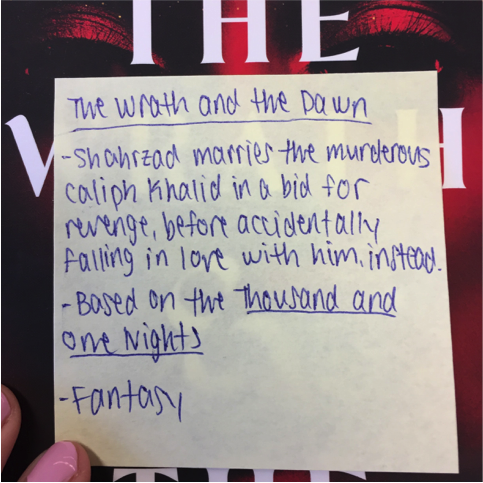 THE
W H
The Wrath and the Dawn
-Shahrzad marries the murderous
caliph Khalid in a bid for
revenge, before accidentally
falling in love with him, instead.
-Based on the Thousand and
One Nights
-Fantasy